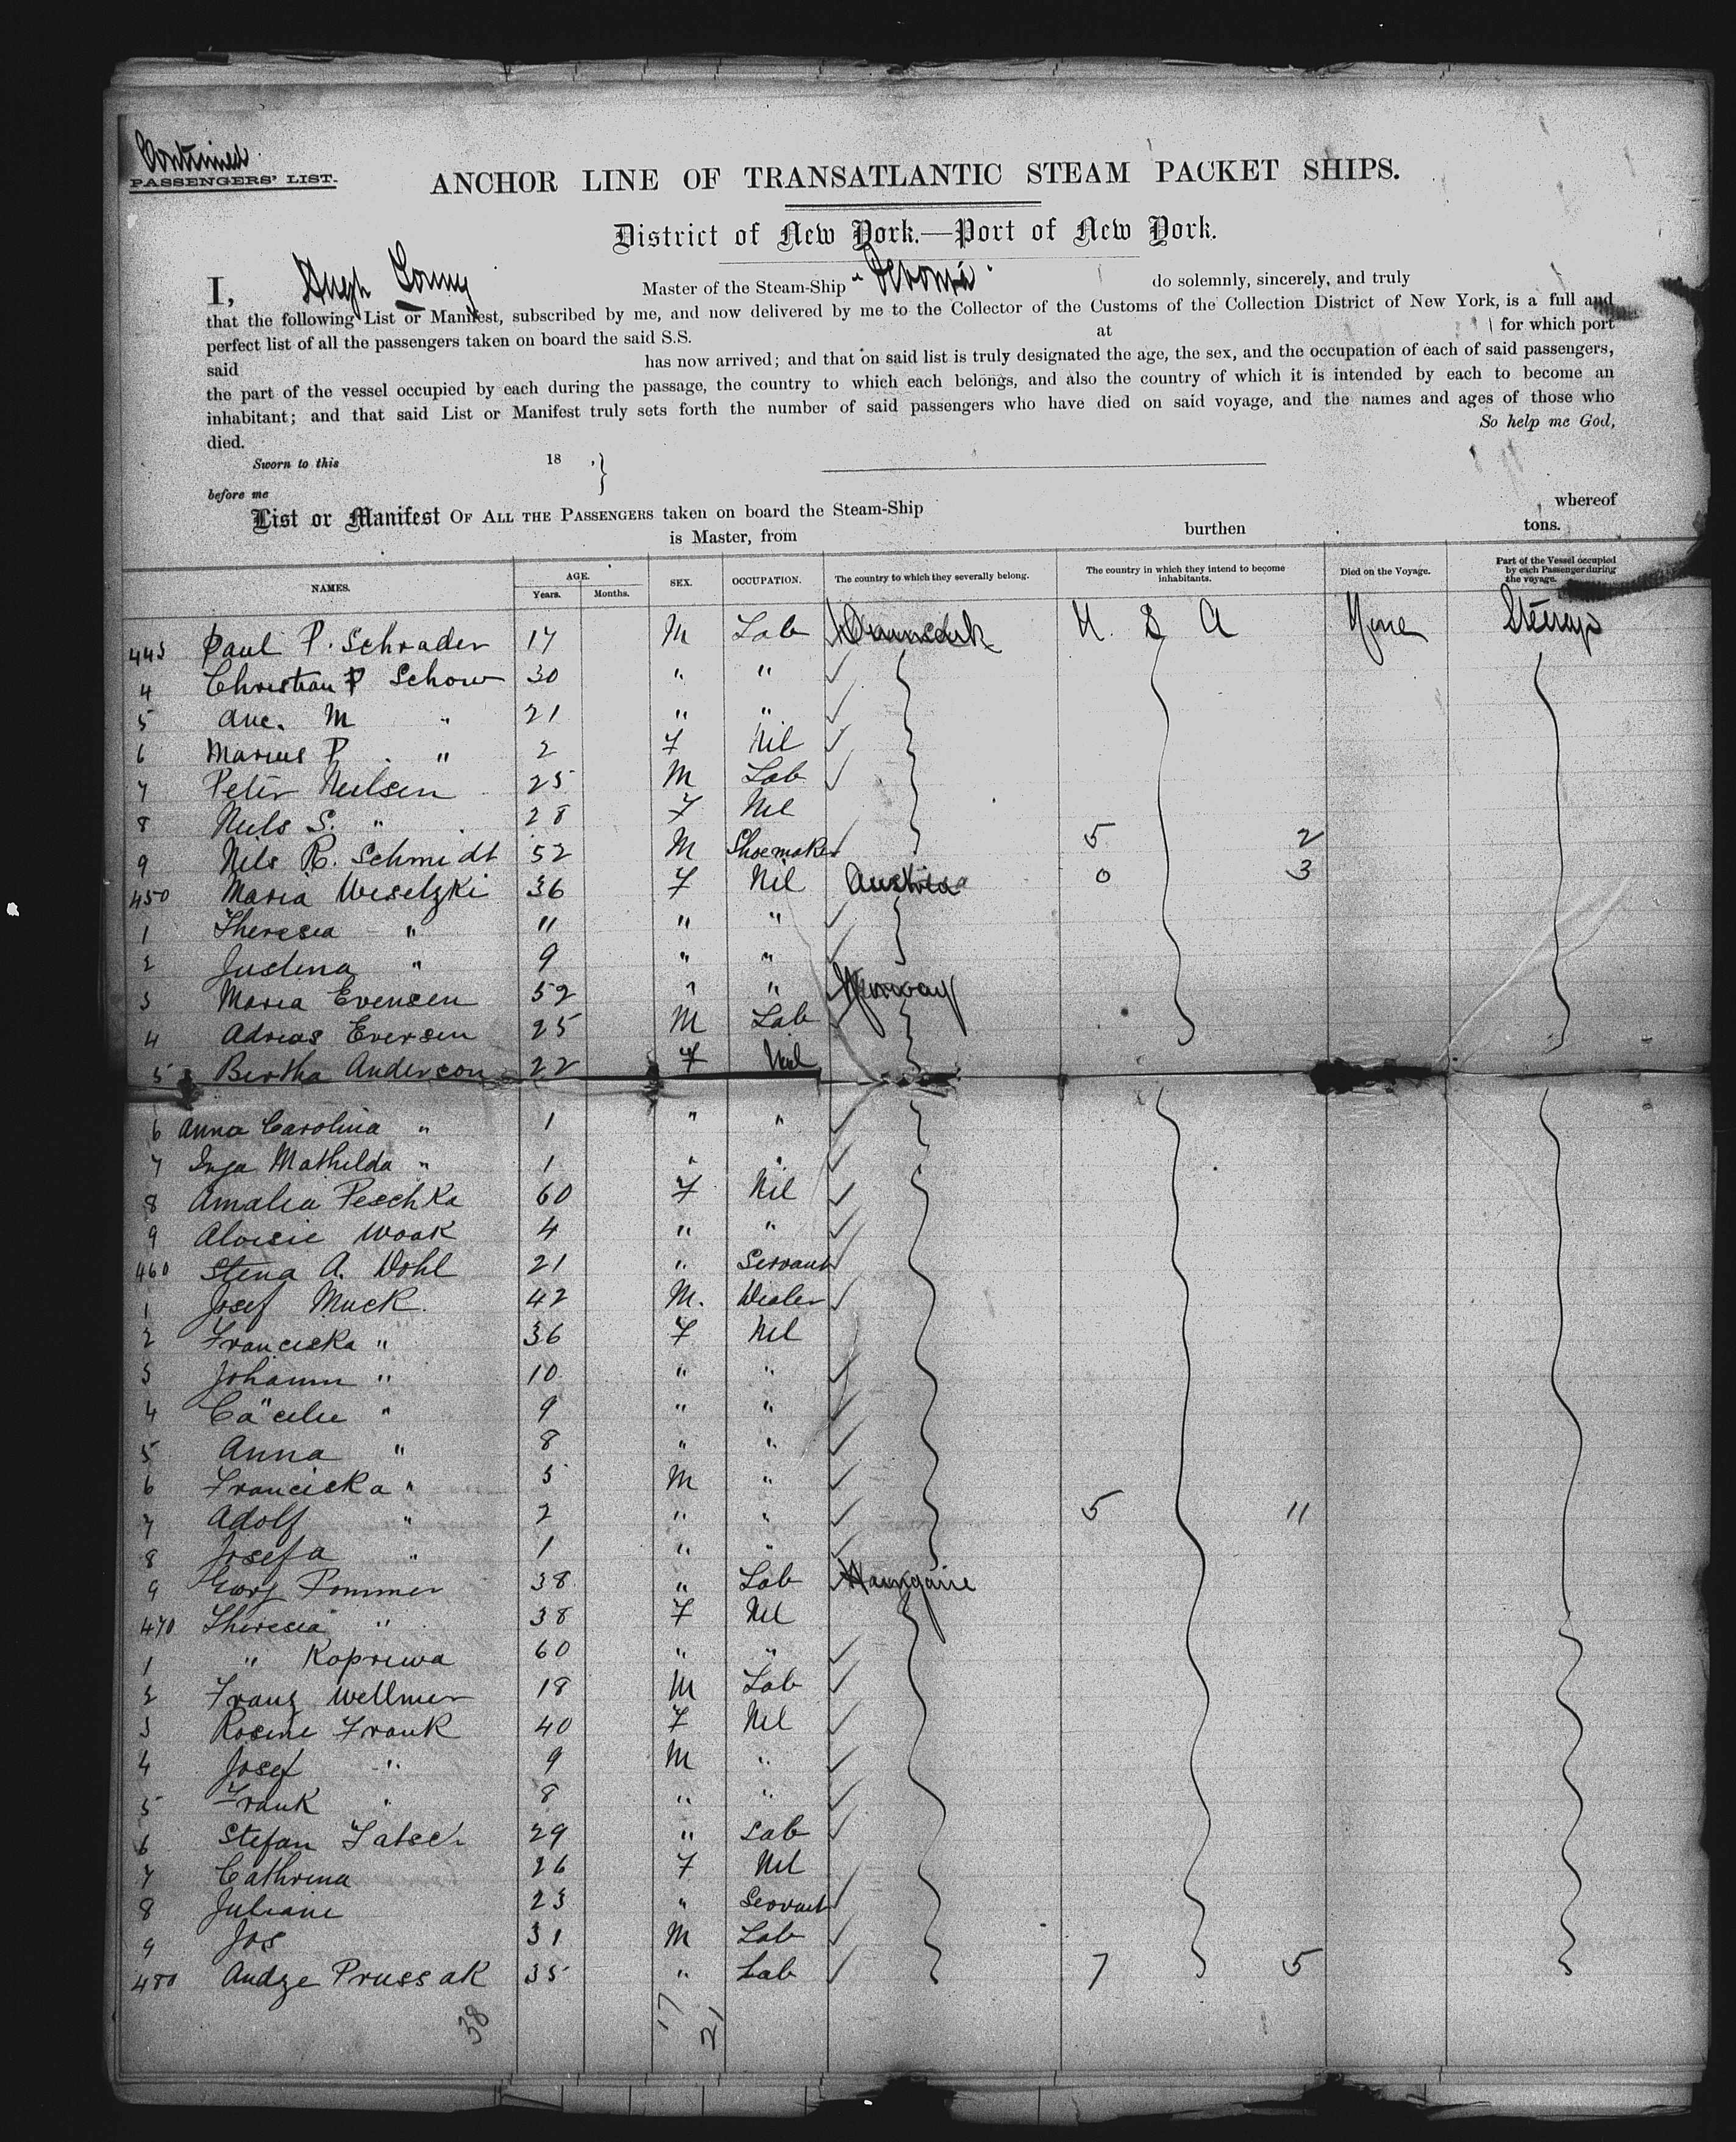 Continued
PASSENGERS' LIST.
ANCHOR LINE OF TRANSATLANTIC STEAM PACKET SHIPS.
District of New York.—Port of New York.
I, Hugh Young Master of the Steam-Ship "Devonia" do solemnly, sincerely, and truly
that the following List or Manifest, subscribed by me, and now delivered by me to the Collector of the Customs of the Collection District of New York, is a full and
perfect list of all the passengers taken on board the said S.S. at for which port
said has now arrived; and that on said list is truly designated the age, the sex, and the occupation of each of said passengers,
the part of the vessel occupied by each during the passage, the country to which each belongs, and also the country of which it is intended by each to become an
inhabitant; and that said List or Manifest truly sets forth the number of said passengers who have died on said voyage, and the names and ages of those who
died. So help me God,
Sworn to this 18 ,}
before me
List or Manifest OF ALL THE PASSENGERS taken on board the Steam-Ship whereof
is Master, from burthen tons.
NAMES. AGE. Years. Months. SEX. OCCUPATION. The country to which they severally belong. The country in which they intend to become inhabitants. Died on the Voyage. Part of the Vessel occupied by each Passenger during the voyage.
443 Paul P. Schrader 17 M Lab U. S A None
4 Christian P Schow 30 " "
5 Ane. M " 21 " "
6 Marius P " 2 F Nil
7 Peter Neilsen 25 M Lab
8 Neils S. " 28 F Nil
9 Nils R. Schmidt 52 M Shoemaker 5 2
450 Maria Weselzki 36 F Nil Austria 0 3
1 Theresia " 11 " "
2 Justina " 9 " "
3 Maria Evensen 52 " " Norway
4 Adrias Eversen 25 M Lab
5 Bertha Anderson 22 F Nil
6 Anna Carolina " 1 " "
7 Inga Mathilda " 1 " "
8 Amalia Peschka 60 F Nil
9 Aloisie Wook 4 " "
460 Stena A. Dohl 21 " Servant
1 Josef Muck 42 M. Dealer
2 Franciska " 36 F Nil
3 Johann " 10 " "
4 Cäcilie " 9 " "
5 Anna " 8 " "
6 Franciska " 5 M "
7 Adolf " 2 " " 5 11
8 Josefa " 1 " "
9 Georg Pommer 38 " Lab
470 Theresia " 38 F Nil
1 " Kopriwa 60 " "
2 Franz Wellmer 18 M Lab
3 Rosine Frank 40 F Nil
4 Josef " 9 M "
5 Frank " 8 " "
6 Stefan 29 " Lab
7 Cathrina 26 F Nil
8 Juliane 23 " Servant
9 Jos 31 M Lab
480 Andze Prussak 35 " Lab 7 5
38 17 21